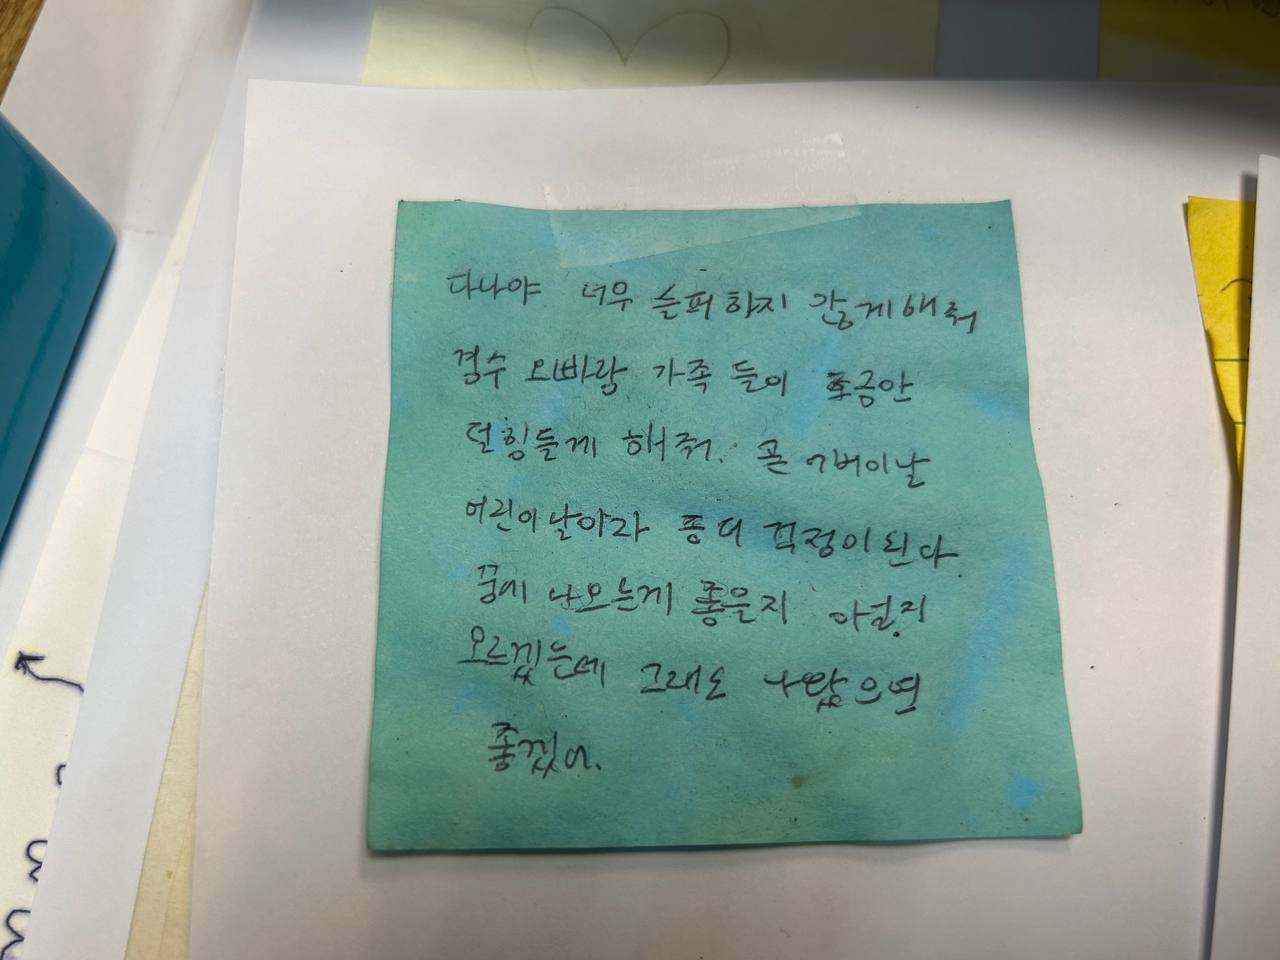 다나야 너무 슬퍼하지 않게해줘
경수 오빠랑 가족들이 조금만
덜힘들게 해줘. 곧 어버이날
어린이날이라 좀더 걱정이된다
꿈에 나오는게 좋은지 아닌지
모르겠는데 그래도 나왔으면
좋겠어.